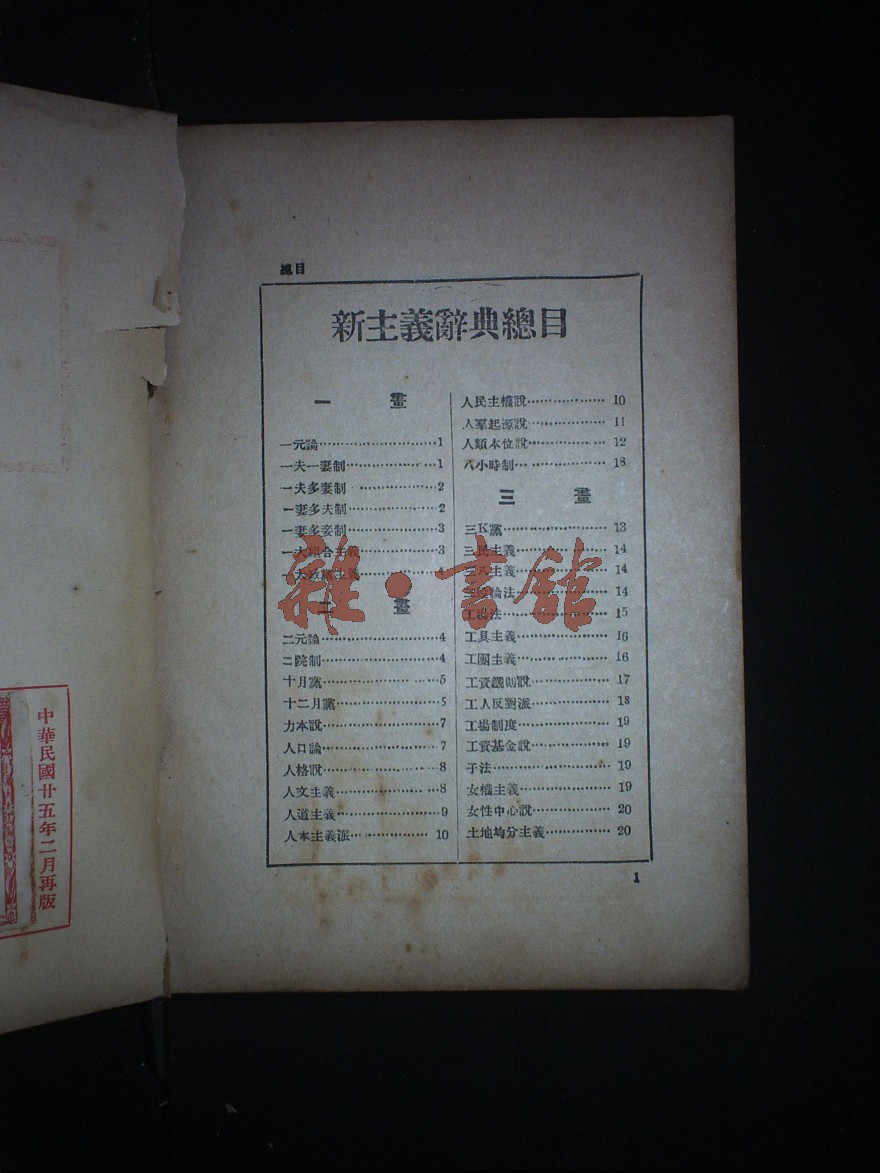 總目
新主義辭典總目
一 畫
一元論…………………1
一夫一妻制……………1
一夫多妻制……………2
一妻多夫制……………2
一妻多妾制……………3
一大和合主義…………3
一大政黨主義…………4
二 畫
二元論…………………4
二院制…………………4
十月黨…………………5
十二月黨………………5
力本說…………………7
人口論…………………7
人格說…………………8
人文主義………………8
人道主義………………9
人本主義派……………10
人民主權說……………10
人羣起源說……………11
人類本位說……………12
八小時制………………18
三 畫
三K黨…………………13
三民主義………………14
三八主義………………14
三段論法………………14
工場法…………………15
工具主義………………16
工團主義………………16
工資鐵則說……………17
工人反對派……………18
工場制度………………19
工資基金說……………19
子法……………………19
女權主義………………19
女性中心說……………20
土地均分主義…………20
1
中華民國廿五年二月再版
雜·書館